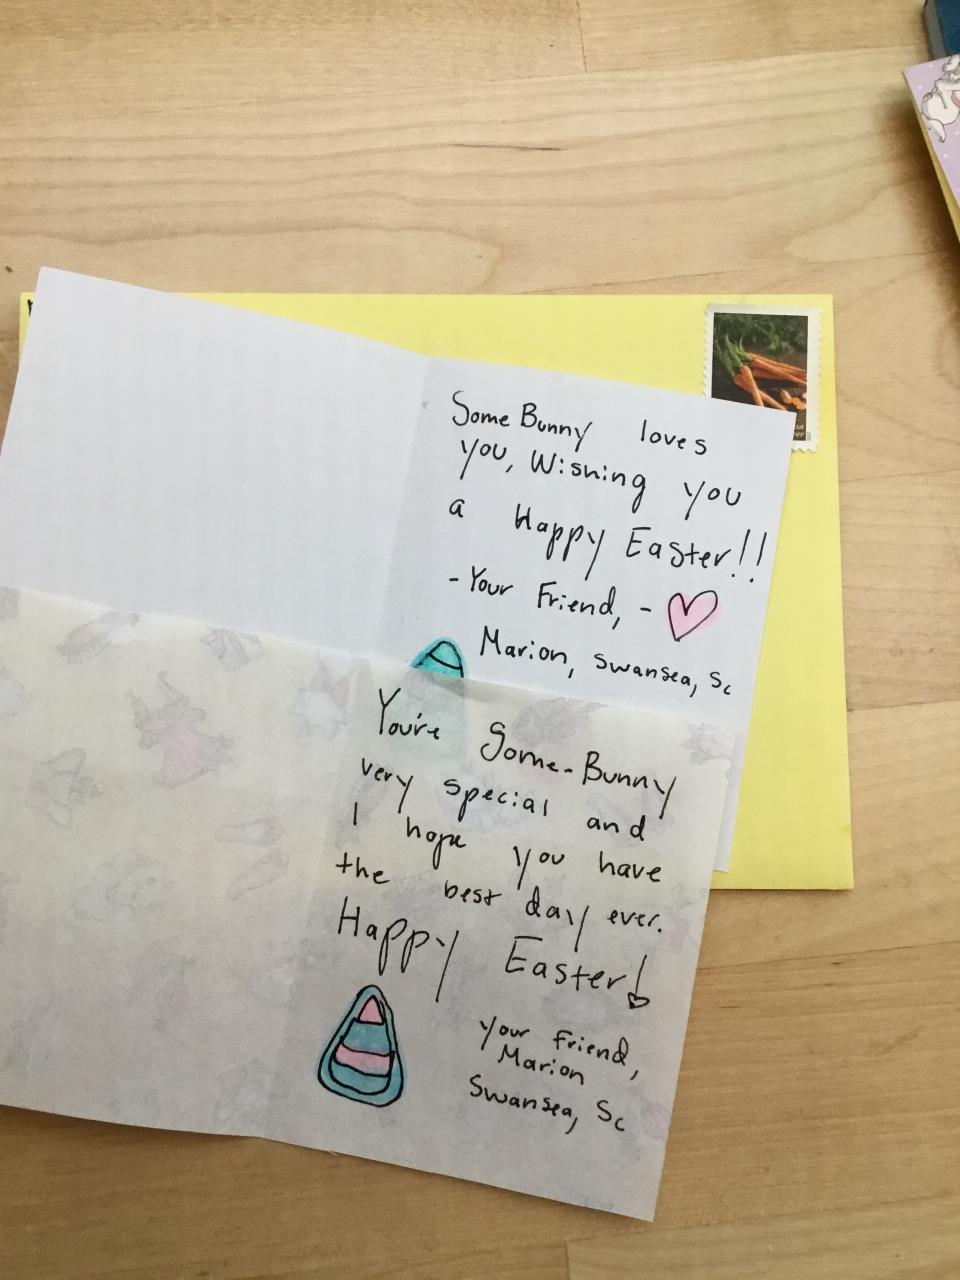 Some Bunny loves
you, Wishing you
a Happy Easter!!
- Your Friend, -
Marion, Swansea, Sc
You're Some-Bunny
very special and
I hope you have
the best day ever.
Happy Easter!
Your Friend,
Marion
Swansea, Sc